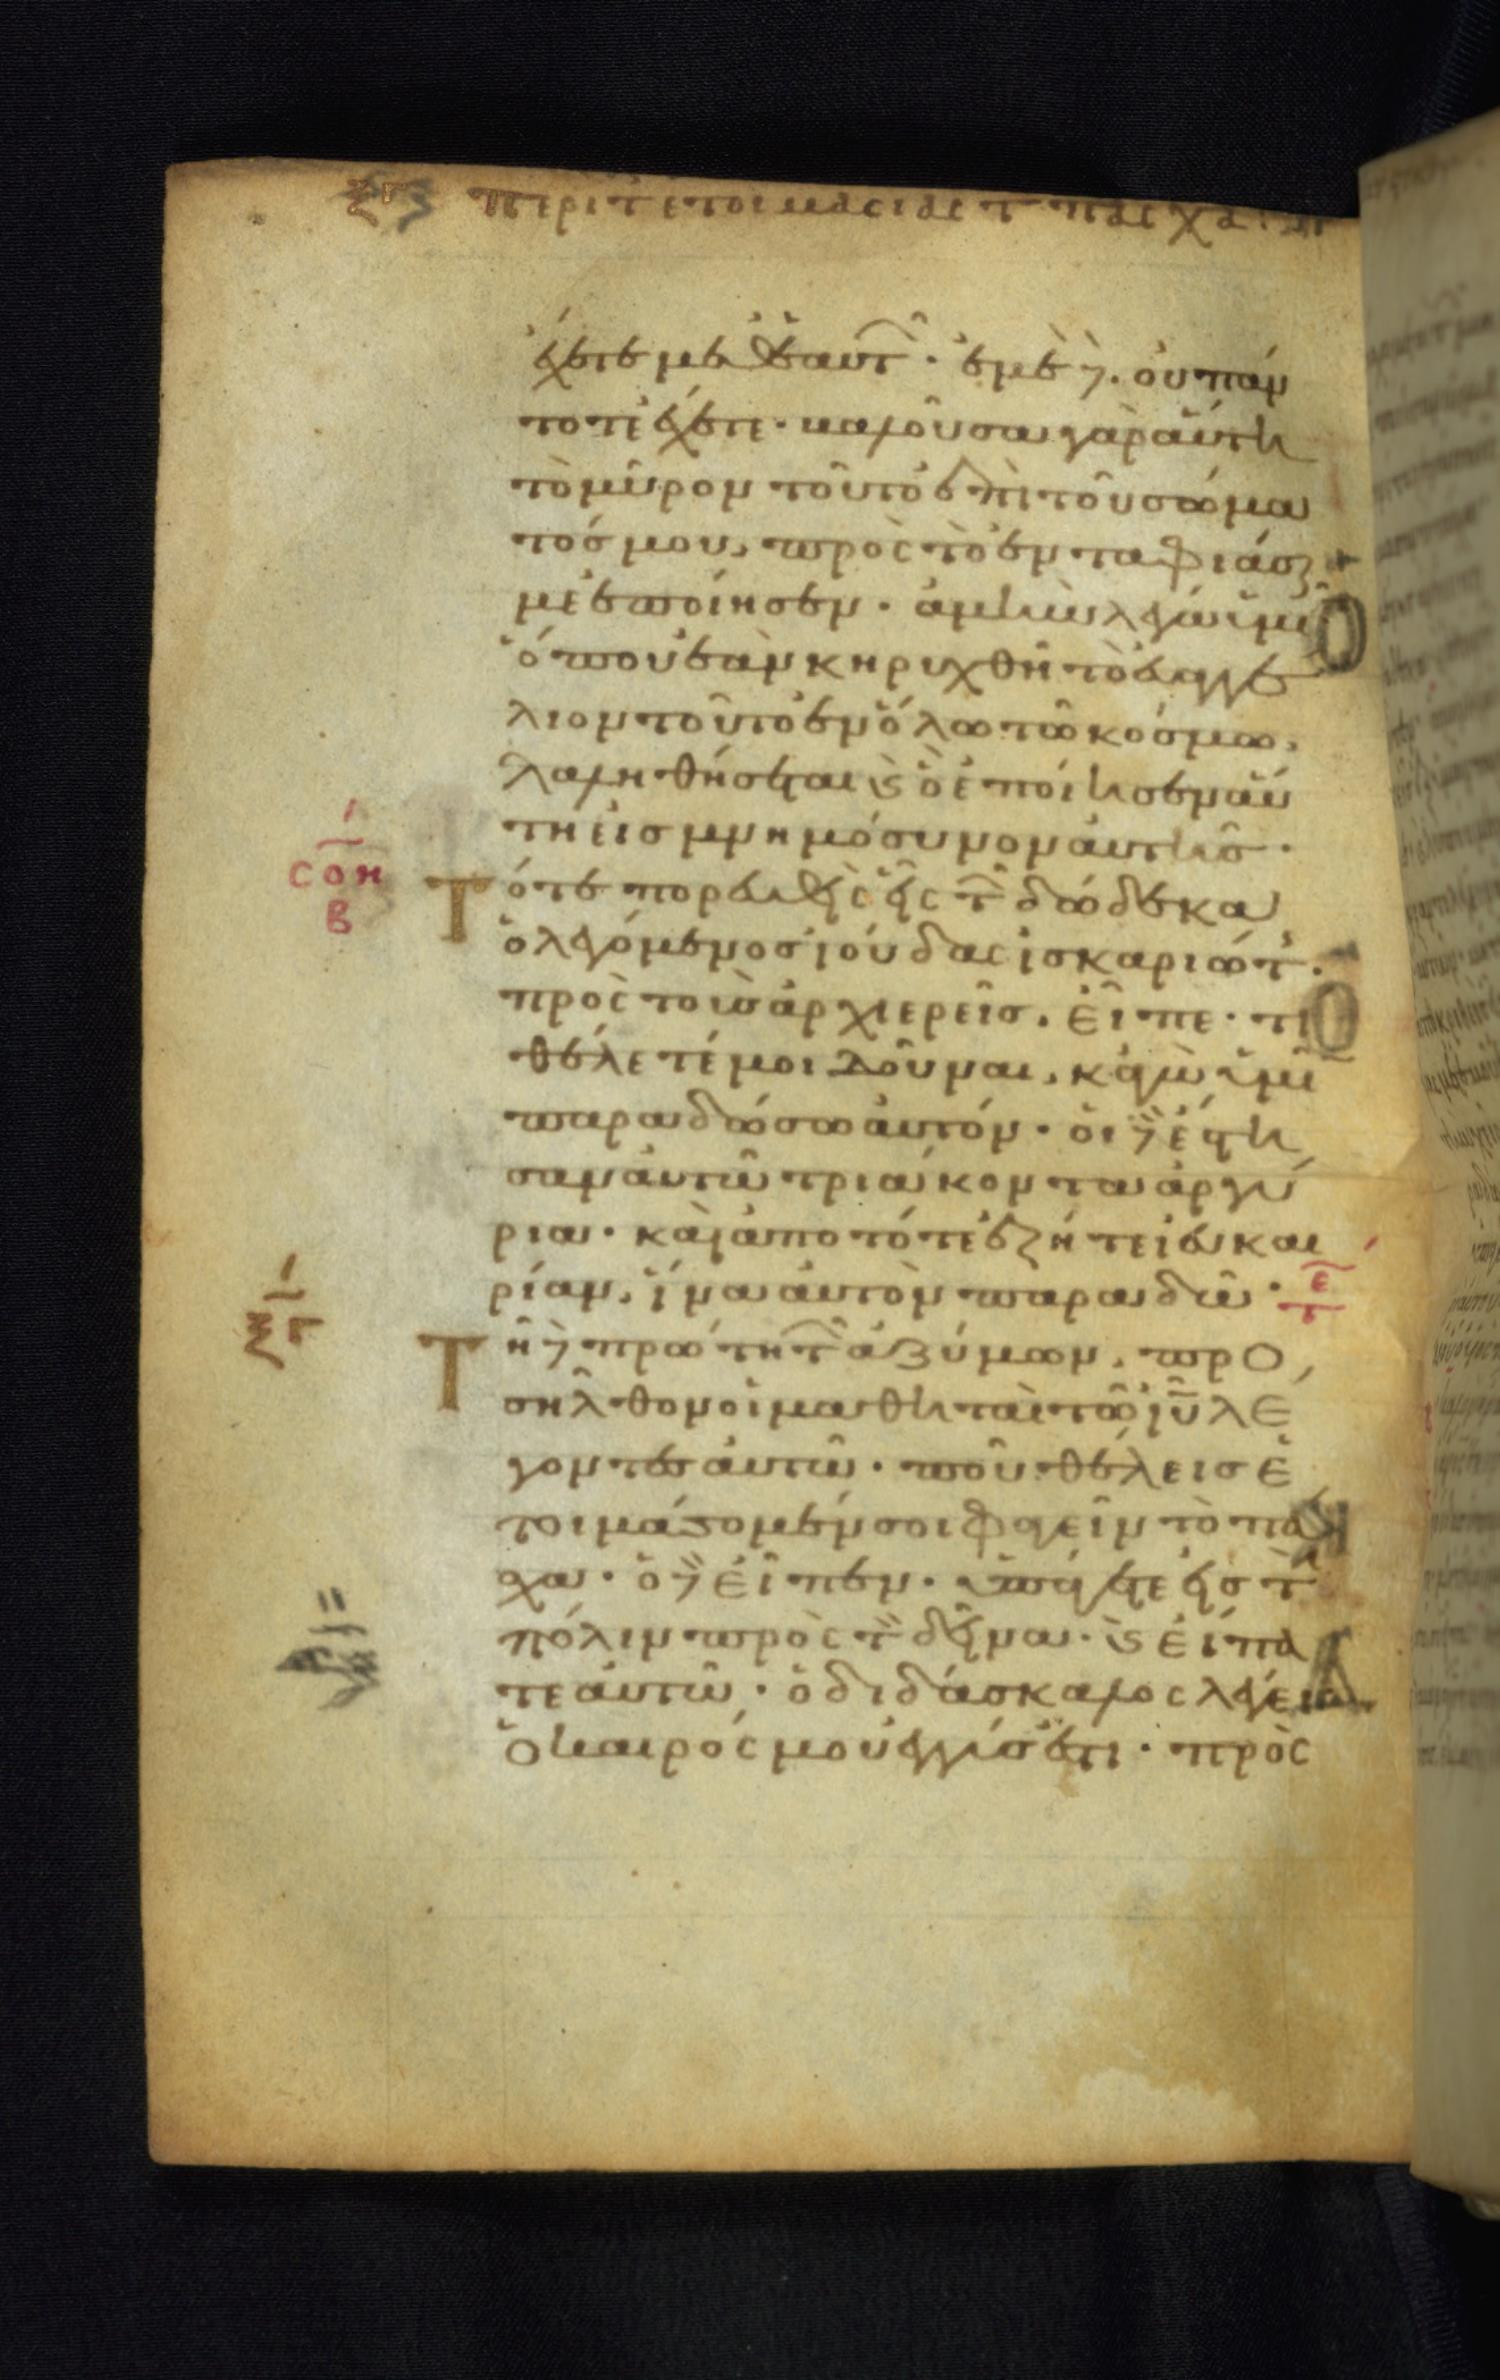 ξγ περὶ τ ἑτοιμασίας τ πάσχα
ἔχετε μεθ ἑαυτ · ἐμὲ δ. οὐ πάν
τοτε ἔχετε · βαλοῦσα γὰρ αὕτη
τὸ μύρον τοῦτο ἐπὶ τοῦ σώμα
τός μου, πρὸς τὸ ἐνταφιάσ
με ἐποίησεν · ἀμὴν λέγω ὑμῖ
ὅπου ἐὰν κηρυχθῆ τὸ εὐαγγε
λιον τοῦτο ἐν ὅλω τῶ κόσμω,
λαληθήσεται ϗ ὃ ἐποίησεν αὕ
τη εἰς μνημόσυνον αὐτῆς ·
Τότε πορευθεὶς εἷς τ δώδεκα
ὁ λεγόμενος ἰούδας ἰσκαριώτ.
πρὸς τοὺς ἀρχιερεῖς. εἶπε · τί
θέλετέ μοι δοῦναι, κἀγὼ ὑμῖ
παραδώσω αὐτόν · οἱ δ ἔστη
σαν αὐτῶ τριάκοντα ἀργύ
ρια · καὶ ἀπὸ τότε ἐζήτει εὐκαι
ρίαν, ἵνα αὐτὸν παραδῶ ·
Τῆ δ πρώτη τ ἀζύμων, προ
σῆλθον οἱ μαθηταὶ τῶ ἰυ λέ
γοντες αὐτῶ · ποῦ θέλεις ἑ
τοιμάσομέν σοι φαγεῖν τὸ πά
χα · ὁ δ εἶπεν · ὑπάγετε εἰς τ
πόλιν πρὸς τ δεῖνα · ϗ εἴπα
τε αὐτῶ · ὁ διδάσκαλος λέγει
ὁ καιρός μου ἐγγύς ἐστι · πρὸς